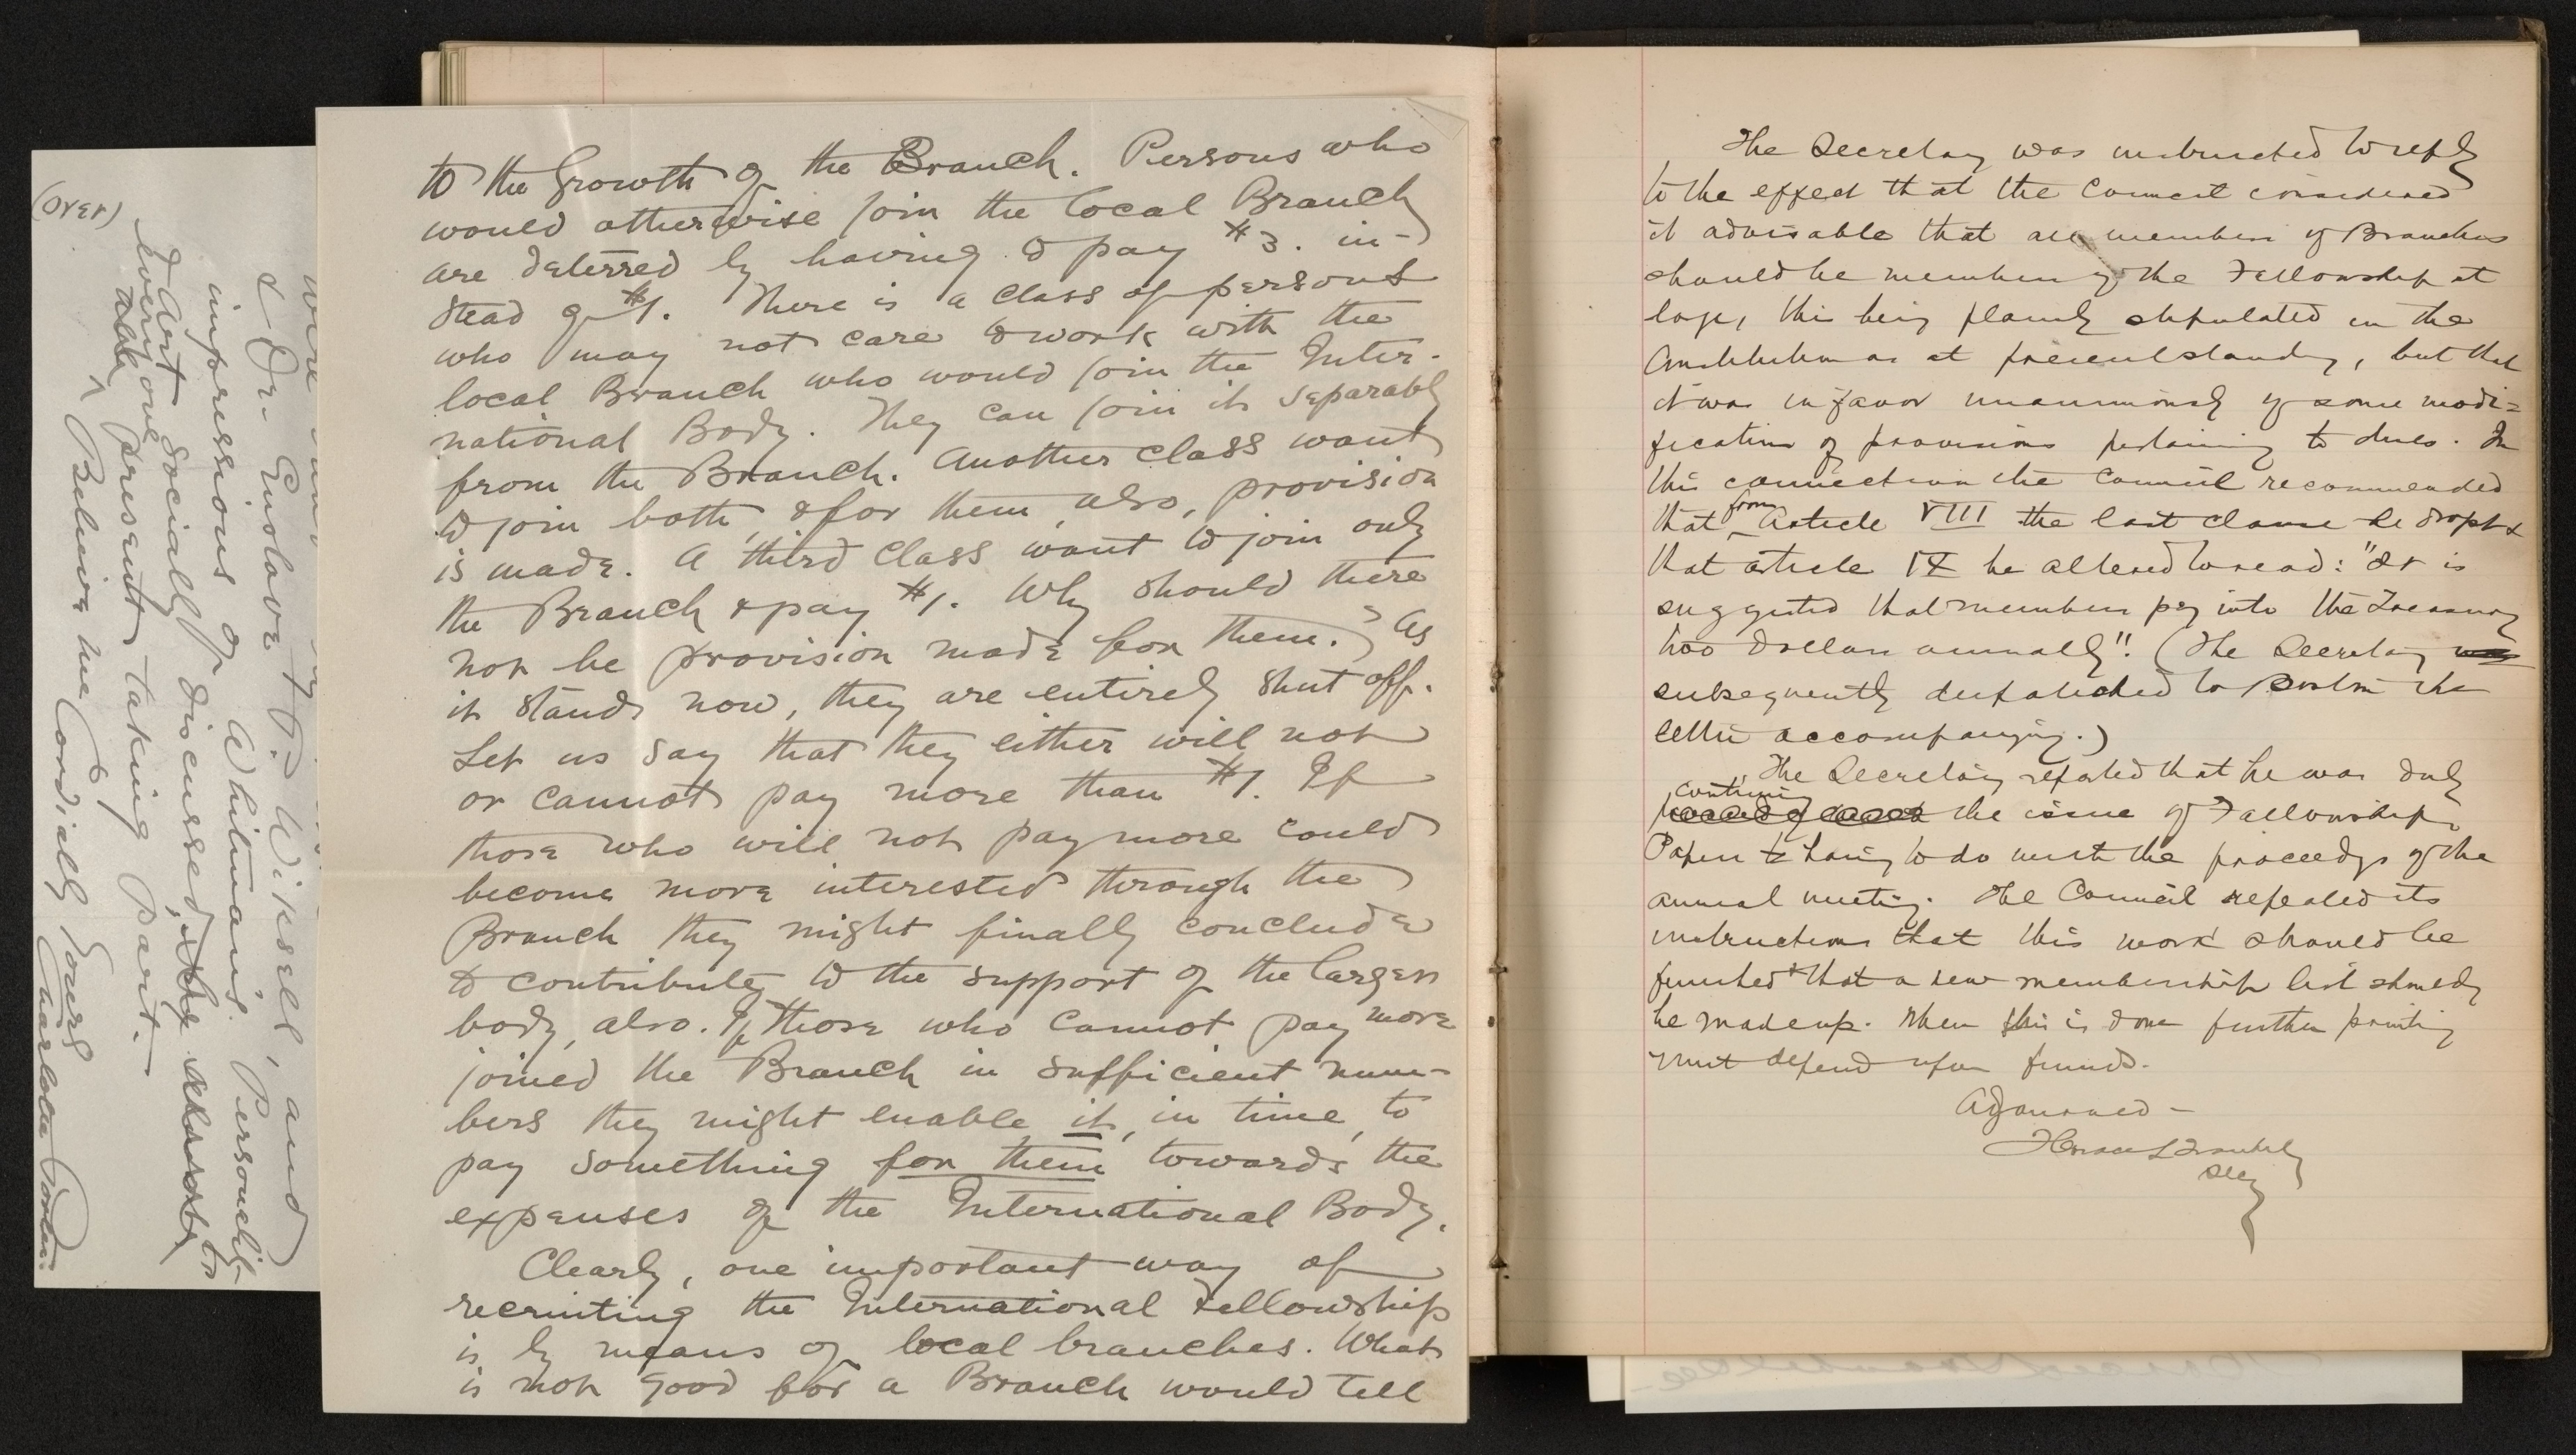 (over)
were
& Dr. Emslova, P. Wiksell, and
impressions of Whitman's Personality
& Art Socially discussed,
every one present taking part.
Believe me Cordially Yours
Charlotte Porter.
to the growth of the Branch. Persons who
would otherwise join the local Branch
are deterred by having to pay $3. in-
stead of $1. There is a class of persons
who may not care to work with the
local Branch who would join the Inter-
national Body. They can join it separably
from the Branch. Another class want
to join both, & for them, also, provision
is made. A third class want to join only
the Branch & pay $1. Why should there
not be provision made for them? As
it stands now, they are entirely shut off.
Let us say that they either will not
or cannot pay more than $1. If
those who will not pay more could
become more interested through the
Branch they might finally conclude
to contribute to the support of the larger
body, also. If those who cannot pay more
joined the Branch in sufficient num-
bers they might enable it, in time, to
pay something for them towards the
expenses of the International Body.
Clearly, one important way of
recruiting the International Fellowship
is by means of local branches. What
is not good for a Branch would tell
The Secretary was instructed to reply
to the effect that the Council considered
it advisable that all members of Branches
should be members of the Fellowship at
large, this being plainly stipulated in the
Constitution as at present standing, but that
it was in favor unanimously of some modi=
fication of provisions pertaining to dues. In
this connection the Council recommended
that from Article VIII the last clause be dropt &
that article IX be altered to read: "It is
suggested that members pay into the Treasury
two dollars annually". (The Secretary was
subsequently despatched to Boston the
letter accompanying.)
The Secretary reported that he was duly
continuing the issue of Fellowship
Papers & having to do with the proceedgs of the
annual meeting. The Council repeated its
instructions that this work should be
finished & that a new membership list should
be made up. When this is done further printing
must depend upon funds.
Adjourned –
Horace L Traubel
Secy